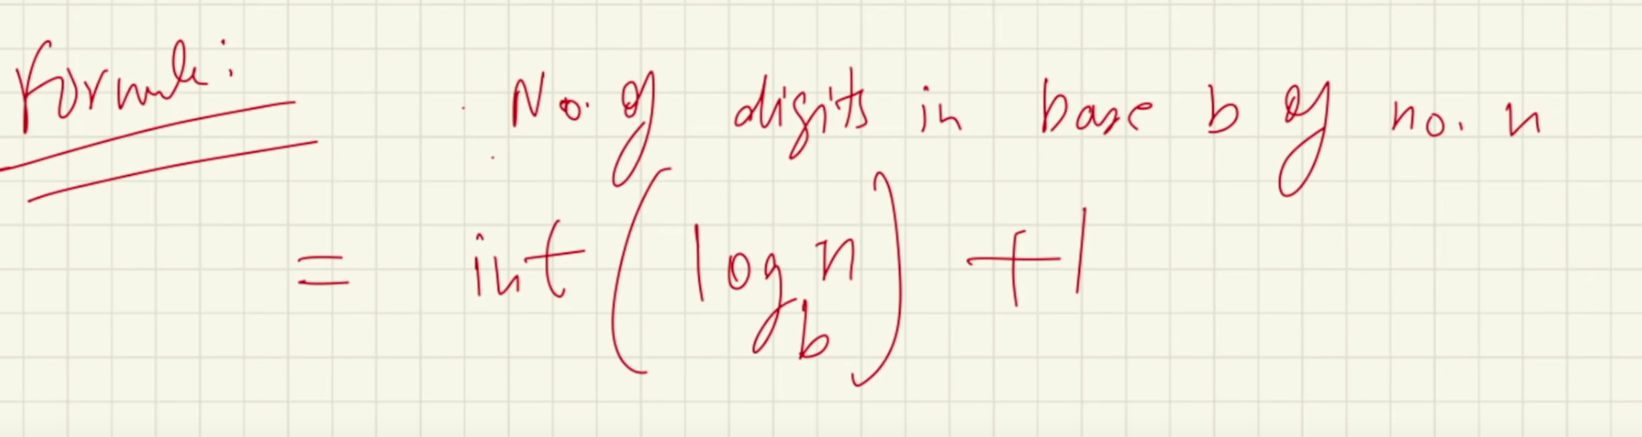 Formula:
No. of digits in base b of no. n
= int (log_b n) + 1